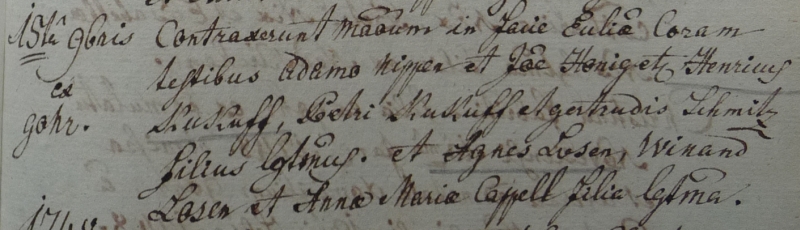 15tâ 9bris Contraxerunt m̃rium in facie EcclIæ Coram
ex testibus Adamo Nipper et Joẽ Honig et, Henricus
gohr. KuKuff, Petri KuKuff et gertrudis Schmitz
filius lgtmus. et Agnes Losen, Winand
Losen et Annæ Mariæ Cappell filia lgtma.